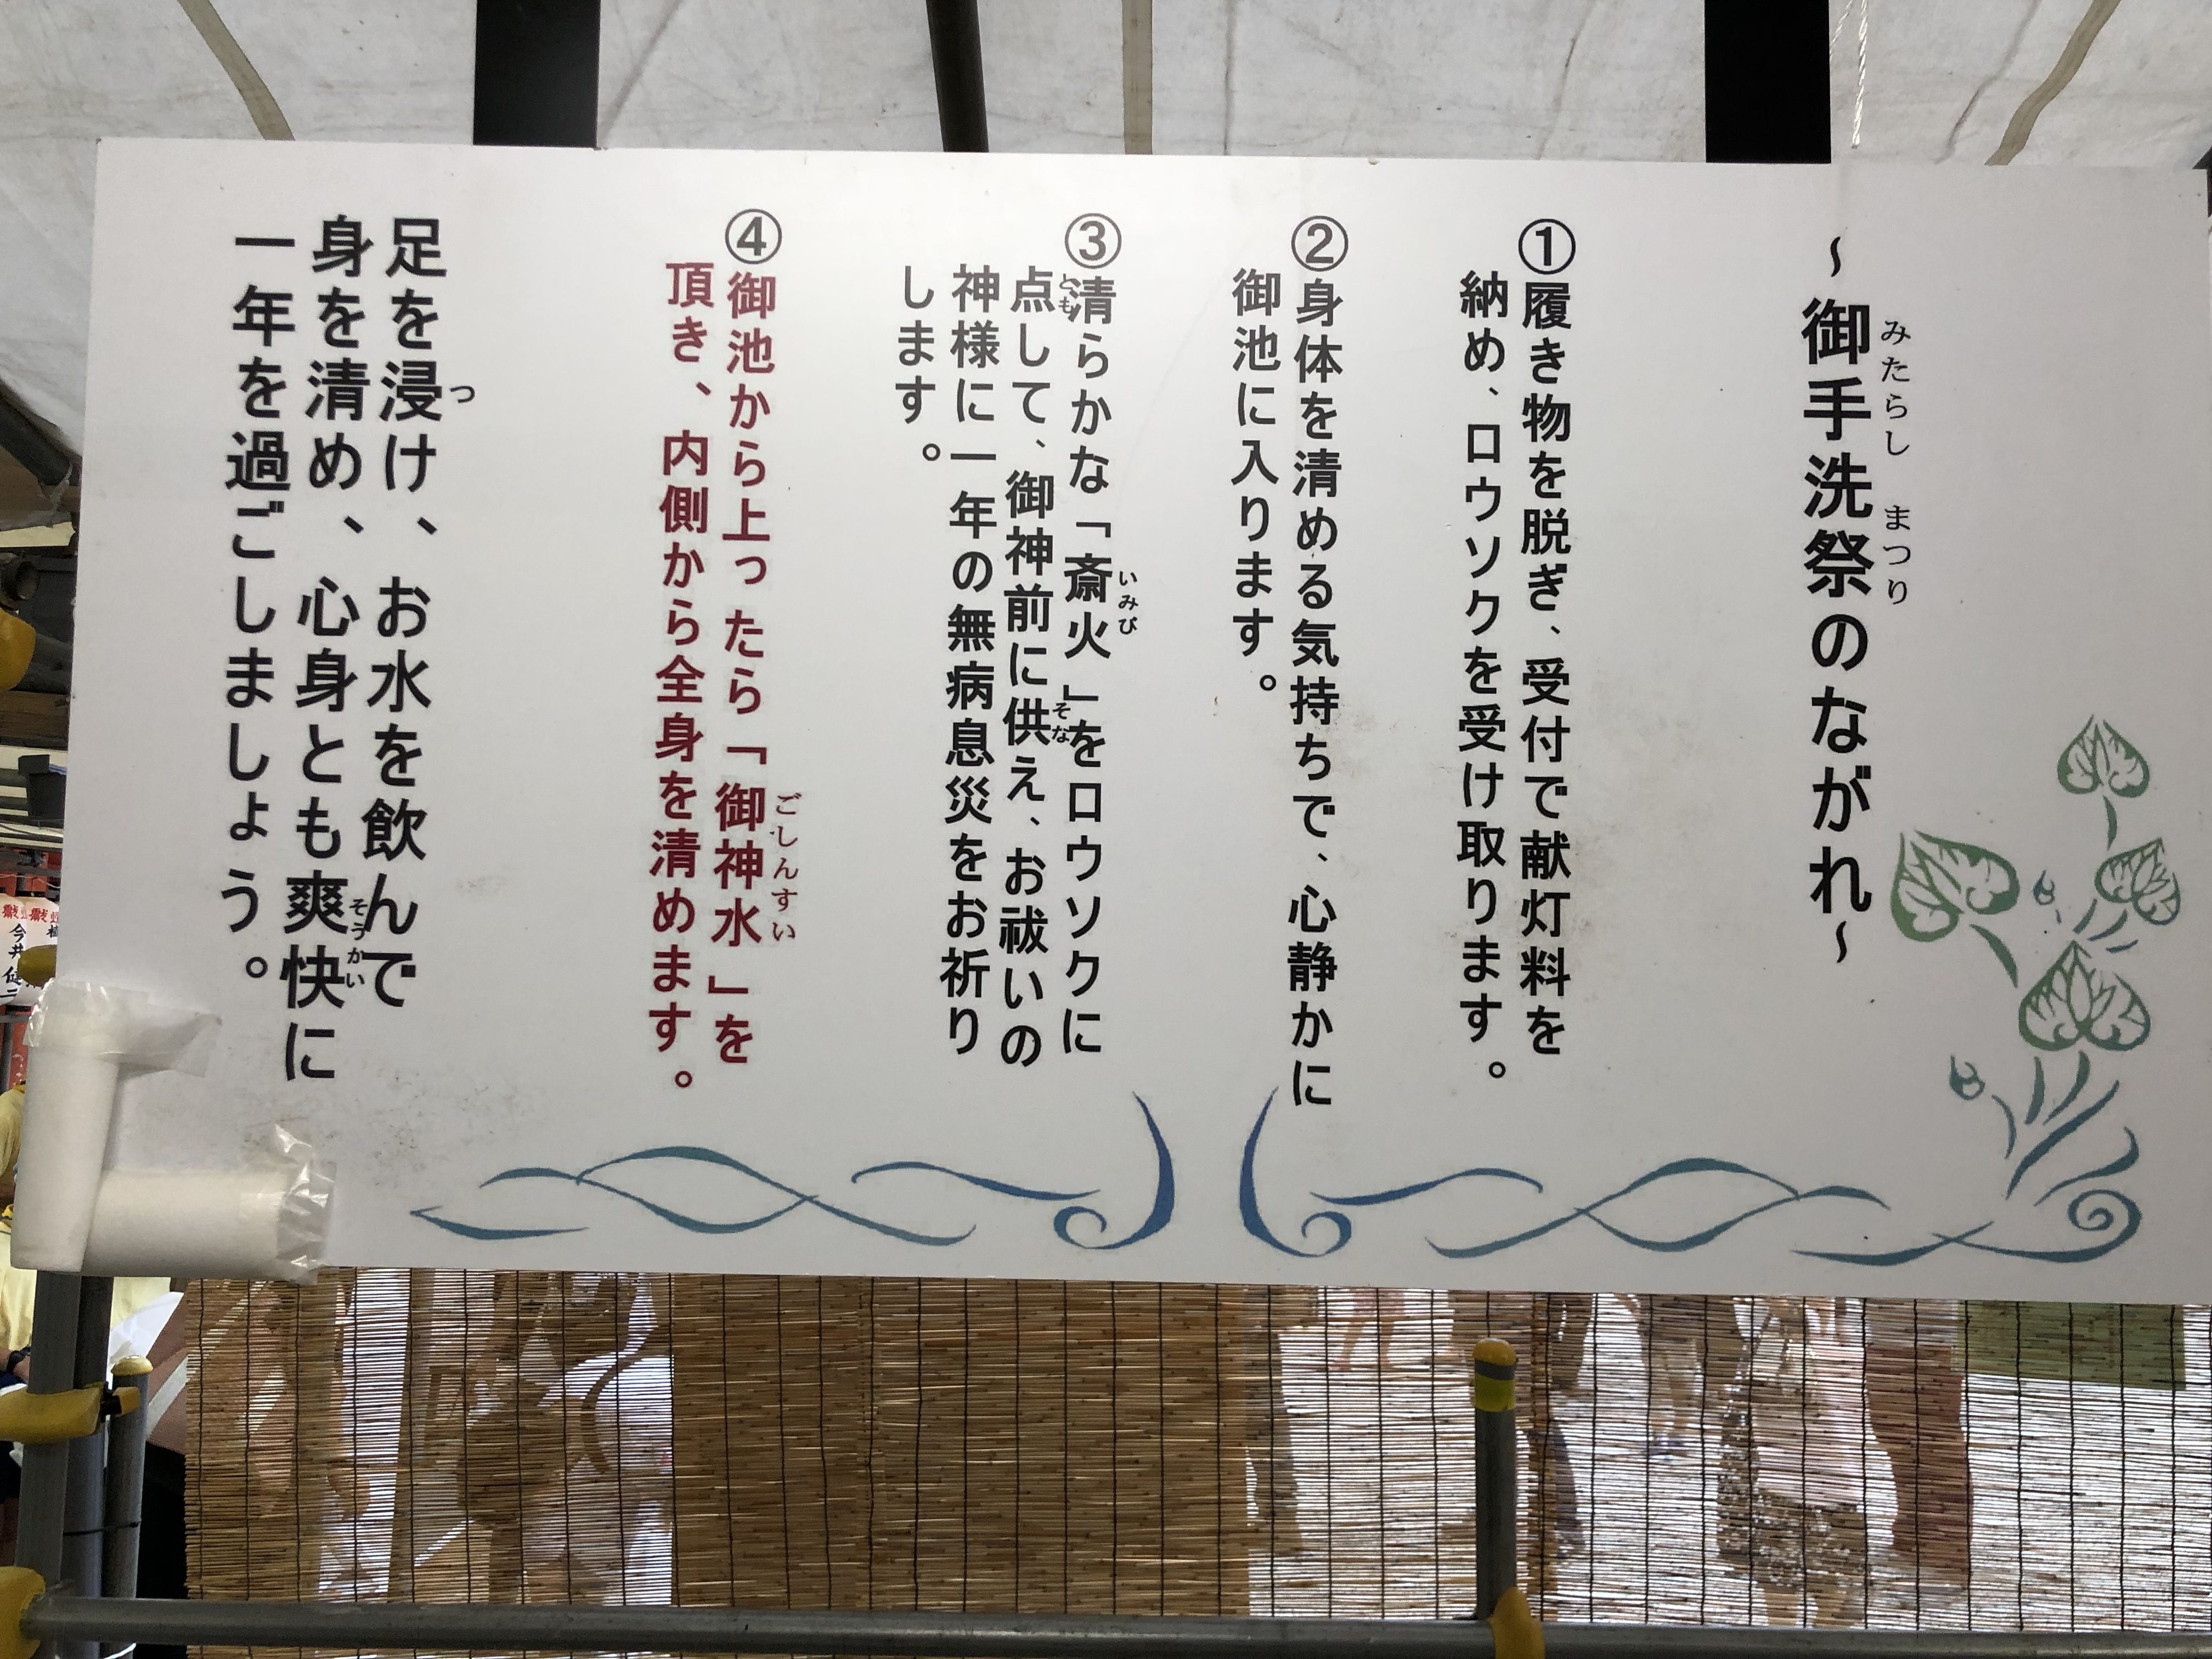 ～御手洗祭のながれ～
みたらし まつり
①履き物を脱ぎ、受付で献灯料を
納め、ロウソクを受け取ります。
②身体を清める気持ちで、心静かに
御池に入ります。
③清らかな「斎火」をロウソクに
いみび
点して、御神前に供え、お祓いの
とも そな
神様に一年の無病息災をお祈り
します。
④御池から上ったら「御神水」を
ごしんすい
頂き、内側から全身を清めます。
足を浸け、お水を飲んで
つ
身を清め、心身とも爽快に
そうかい
一年を過ごしましょう。
今井